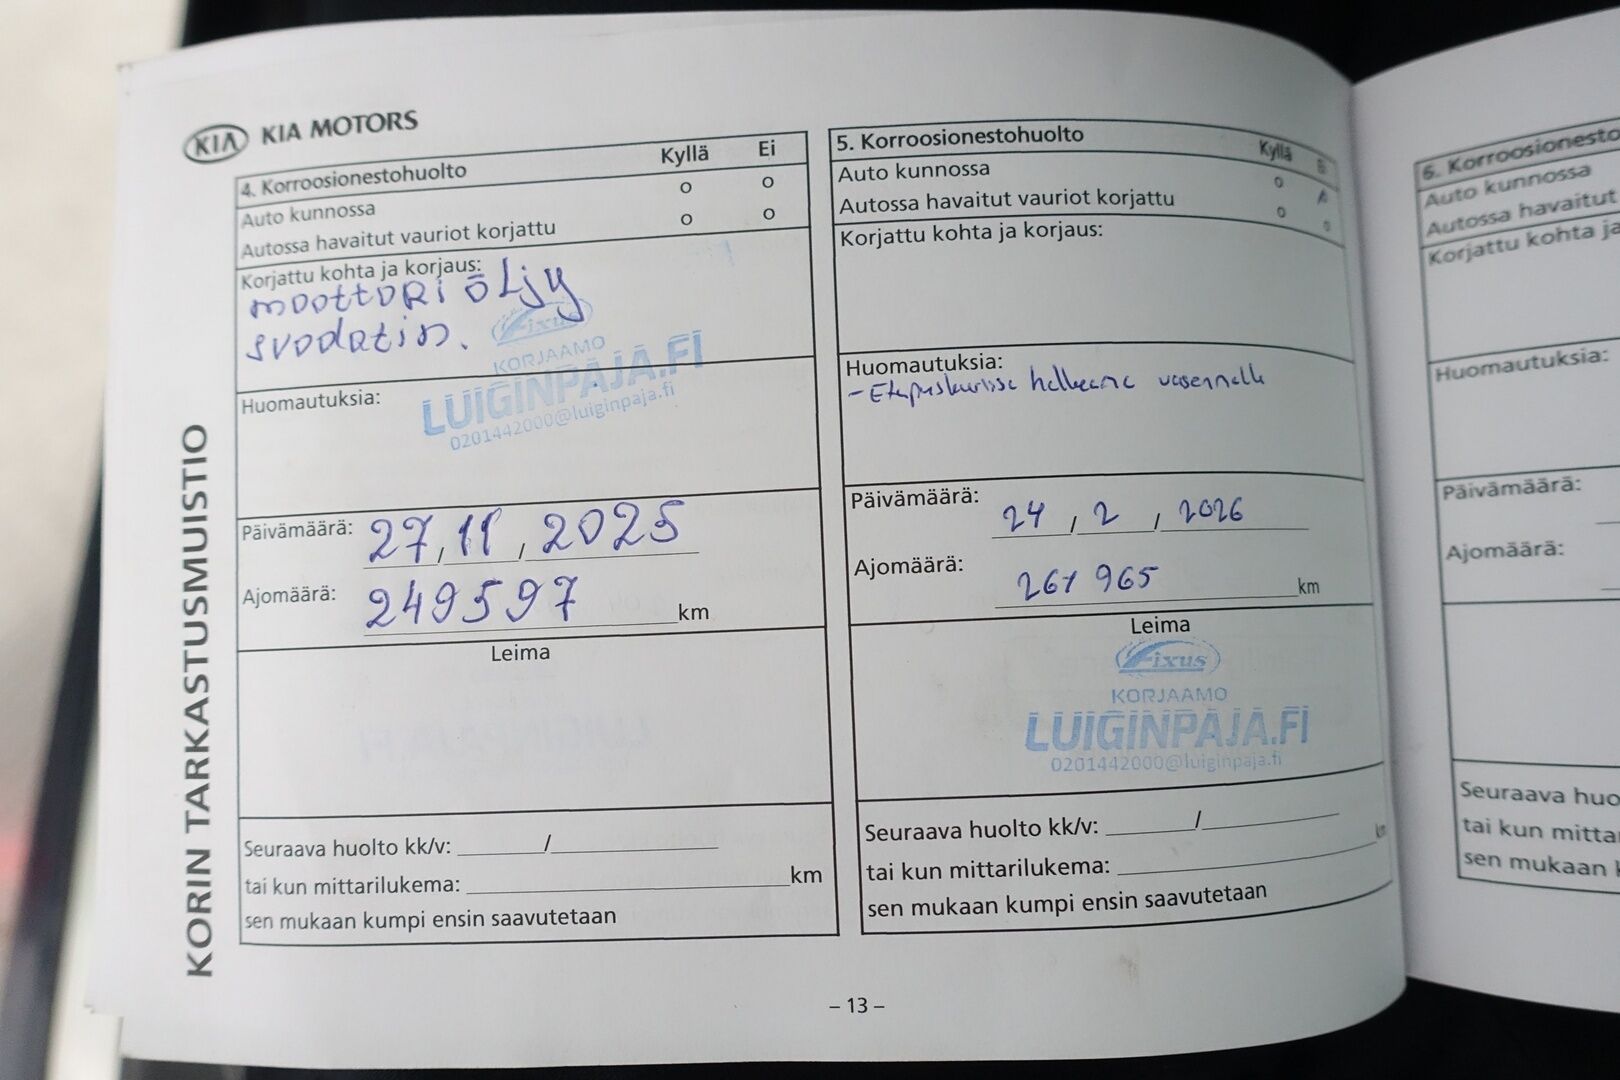 KIA KIA MOTORS
KORIN TARKASTUSMUISTIO
4. Korroosionestohuolto Kyllä Ei
Auto kunnossa o o
Autossa havaitut vauriot korjattu o o
Korjattu kohta ja korjaus:
moottori öljy
svodatin.
Fixus
KORJAAMO
LUIGINPAJA.FI
0201442000@luiginpaja.fi
Huomautuksia:
Päivämäärä: 27, 11, 2025
Ajomäärä: 249597 km
Leima
Seuraava huolto kk/v: /
tai kun mittarilukema: km
sen mukaan kumpi ensin saavutetaan
5. Korroosionestohuolto Kyllä
Auto kunnossa o
Autossa havaitut vauriot korjattu o o
Korjattu kohta ja korjaus:
Huomautuksia:
- vasemmalla
Päivämäärä: 24, 2, 2026
Ajomäärä: 261 965 km
Leima
Fixus
KORJAAMO
LUIGINPAJA.FI
0201442000@luiginpaja.fi
Seuraava huolto kk/v: /
tai kun mittarilukema: km
sen mukaan kumpi ensin saavutetaan
– 13 –
6. Korroosionesto
Auto kunnossa
Autossa havaitut
Korjattu kohta ja
Huomautuksia:
Päivämäärä:
Ajomäärä:
Seuraava huo
tai kun mitta
sen mukaan